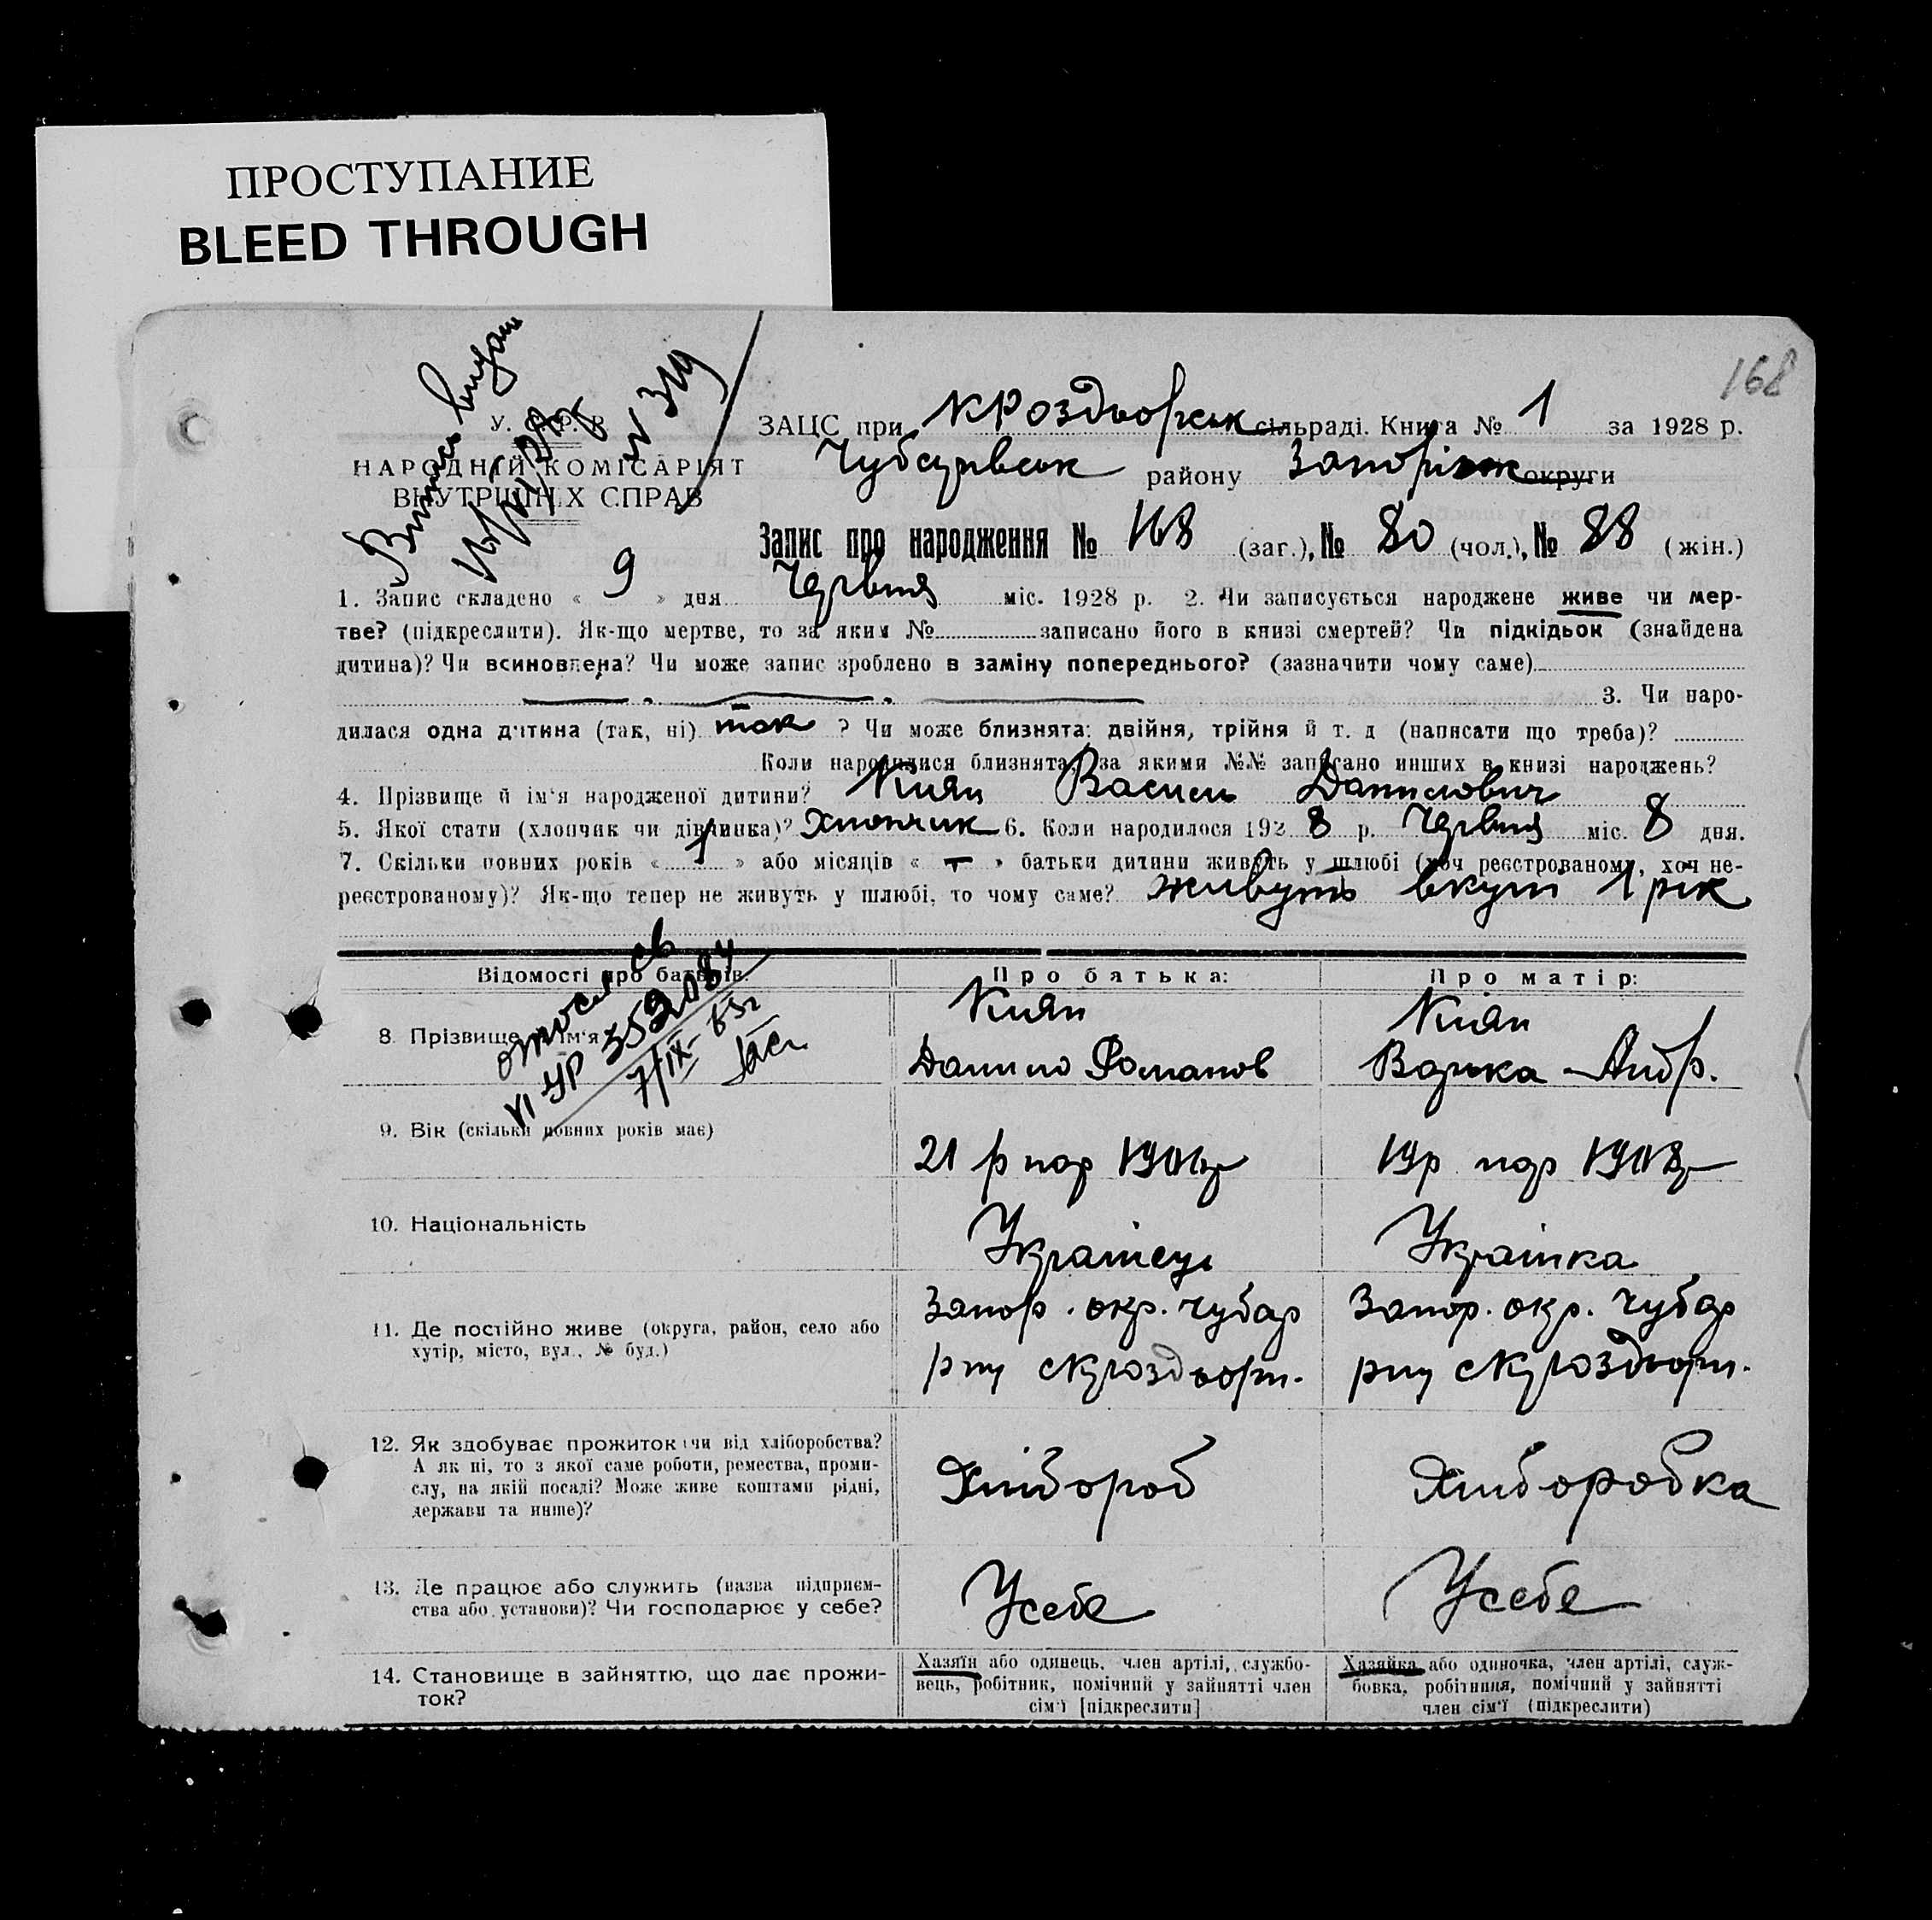 ПРОСТУПАНИЕ
BLEED THROUGH
168
Витяг видан
У. С. Р. Р.
НАРОДНІЙ КОМІСАРІЯТ
ВНУТРІШНІХ СПРАВ
ЗАЦС при Кроздворськ сільраді. Книга № 1 за 1928 р.
району Запоріжж округи
Запис про народження № 168 (заг.), № 80 (чол.), № 88 (жін.)
1. Запис складено « 9 » дня Червня міс. 1928 р. 2. Чи записується народжене живе чи мер-
тве? (підкреслити). Як-що мертве, то за яким № записано його в книзі смертей? Чи підкідьок (знайдена
дитина)? Чи всиновлена? Чи може запис зроблено в заміну попереднього? (зазначити чому саме)
3. Чи наро-
дилася одна дитина (так, ні) так ? Чи може близнята: двійня, трійня й т. д (написати що треба)?
Коли народилися близнята, за якими №№ записано инших в книзі народжень?
4. Прізвище й ім'я народженої дитини? Киян Василь Данилович
5. Якої стати (хлопчик чи дівчинка)? Хлопчик 6. Коли народилося 192 8 р. Червня міс. 8 дня.
7. Скільки повних років « 1 » або місяців « — » батьки дитини живуть у шлюбі (хоч реєстрованому, хоч не-
реєстрованому)? Як-що тепер не живуть у шлюбі, то чому саме? живуть вкупі 1 рік
Відомості про батьків: Про батька: Про матір:
8. Прізвище й ім'я Киян Киян
Данило Романов Варька Андр.
9. Вік (скільки повних років має)
21 р нар 19р нар 1908
10. Національність
Українець Українка
11. Де постійно живе (округа, район, село або
хутір, місто, вул., № буд.)
Запор. окр. Чубар Запор. окр. Чубар
рну с Кроздворн. рну с Кроздворн.
12. Як здобуває прожиток чи від хліборобства?
А як ні, то з якої саме роботи, ремества, проми-
слу, на якій посаді? Може живе коштами рідні,
держави та инше)?
Хлібороб Хліборобка
13. Де працює або служить (назва підприєм-
ства або установи)? Чи господарює у себе?
Усебе Усебе
14. Становище в зайняттю, що дає прожи-
ток?
Хазяїн або одинець, член артілі, службо-
вець, робітник, помічний у зайнятті член
сім'ї [підкреслити]
Хазяйка або одиночка, член артілі, служ-
бовка, робітниця, помічний у зайнятті
член сім'ї (підкреслити)